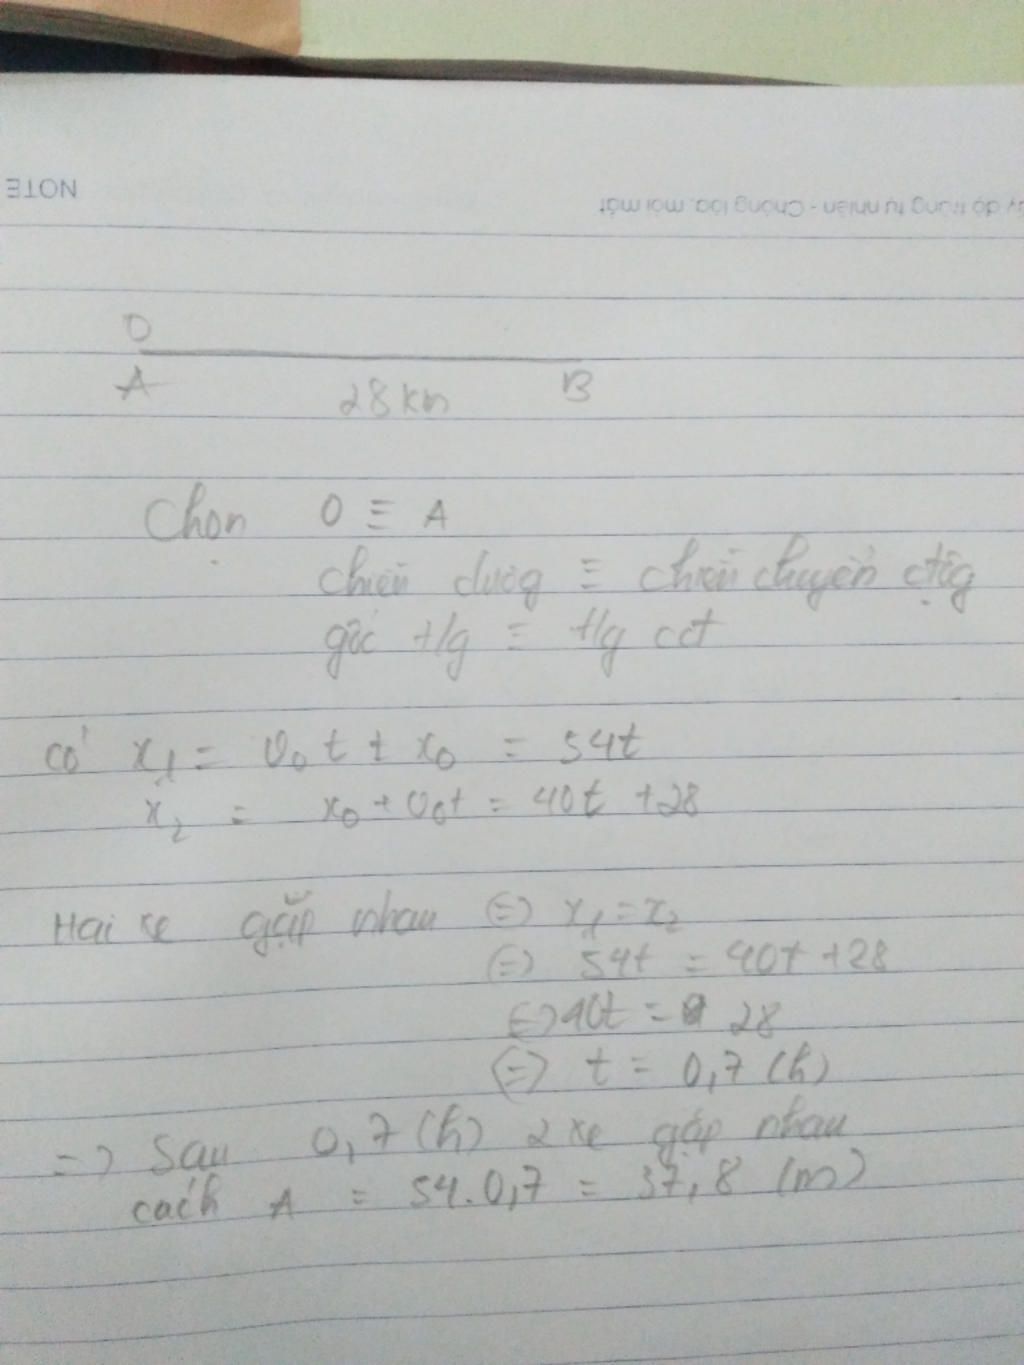 NOTE
độ trắng tự nhiên - Chống lóa, mỏi mắt
O
A 28km B
Chọn O ≡ A
chiều dương ≡ chiều chuyển động
gốc t/g ≡ t/g
có x₁ = v₀t + x₀ = 54t
x₂ = x₀ + v₀t = 40t + 28
Hai xe gặp nhau (=) x₁ = x₂
(=) 54t = 40t + 28
(=) 40t = 28
(=) t = 0,7 (h)
=> Sau 0,7 (h) 2 xe gặp nhau
cách A = 54.0,7 = 37,8 (m)